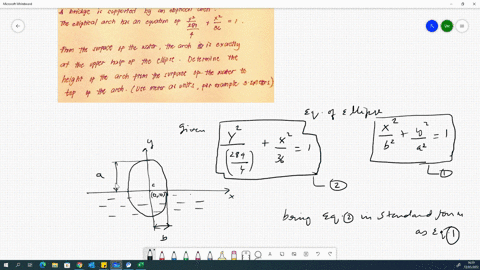 Microsoft Whiteboard
A bridge is supported by an elliptical arch.
The elliptical arch has an equation of y²/(289/4) + x²/36 = 1.
From the surface of the water, the arch is exactly
at the upper half of the ellipse. Determine the
height of the arch from the surface of the water to
top of the arch. (Use meter as units, for example 2.5 meters)
Eq. of Ellipse
given
y²/(289/4) + x²/36 = 1
②
x²/b² + y²/a² = 1
①
y
a
c
(0,0)
x
b
bring Eq ② in standard form
as Eq ①